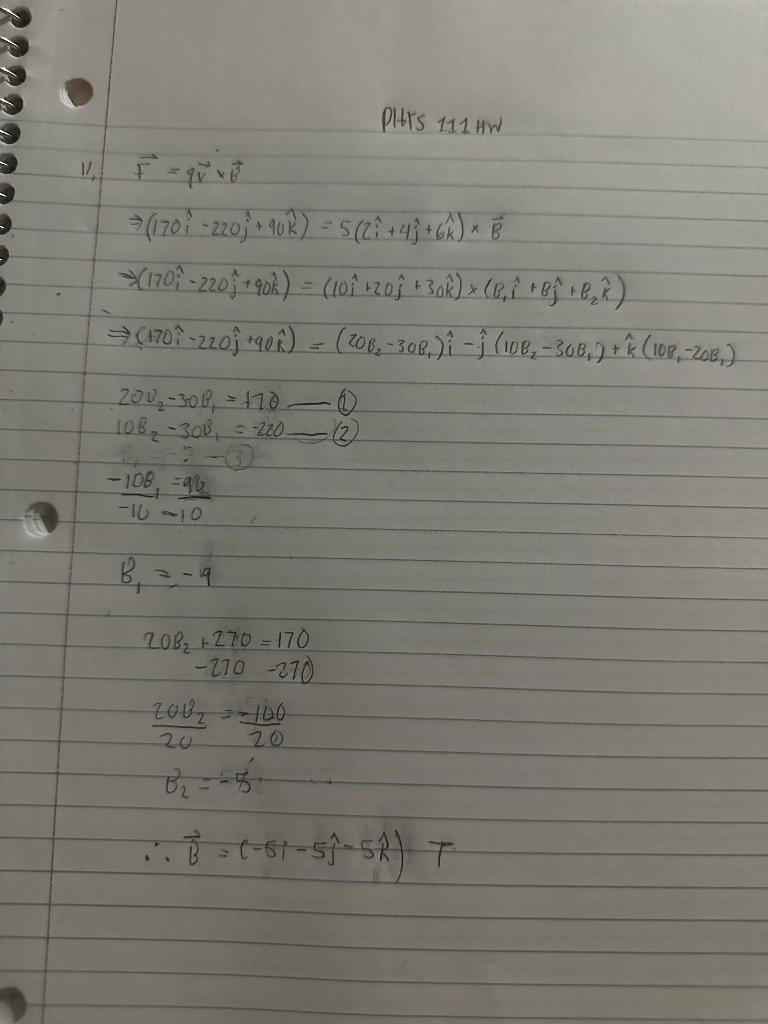 PHYS 111 HW
11. F⃗ = qv⃗ × B⃗
⇒ (170î - 220ĵ + 90k̂) = 5(2î + 4ĵ + 6k̂) × B⃗
⇒ (170î - 220ĵ + 90k̂) = (10î + 20ĵ + 30k̂) × (B₁î + Bĵ + B₂k̂)
⇒ (170î - 220ĵ + 90k̂) = (20B₂ - 30B₁)î - ĵ(10B₂ - 30B₁) + k̂(10B₁ - 20B₁)
20B₂ - 30B₁ = 170 —— ①
10B₂ - 30B₁ = -220 —— ②
-10B₁ = 90
-10 -10
B₁ = -9
20B₂ + 270 = 170
-270 -270
20B₂ = -100
20 20
B₂ = -5
∴ B⃗ = (-5î - 5ĵ - 5k̂) T